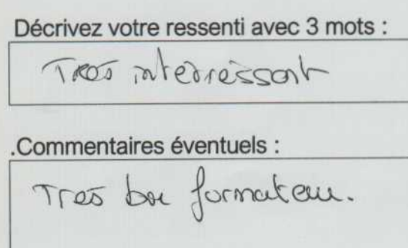 Décrivez votre ressenti avec 3 mots :
Tres interressant
.Commentaires éventuels :
Tres bon formateur.